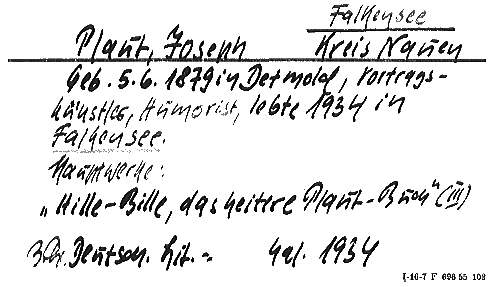 Falkensee
Plaut, Joseph Kreis Nauen
Geb. 5.6.1879 in Detmold, Vortrags-
künstler, Humorist, lebte 1934 in
Falkensee.
Hauptwerke:
„Hille-Bille, das heitere Plaut-Buch" (III)
Deutsch. Lit.- Kal. 1934
I-16-7 F 696 55 103